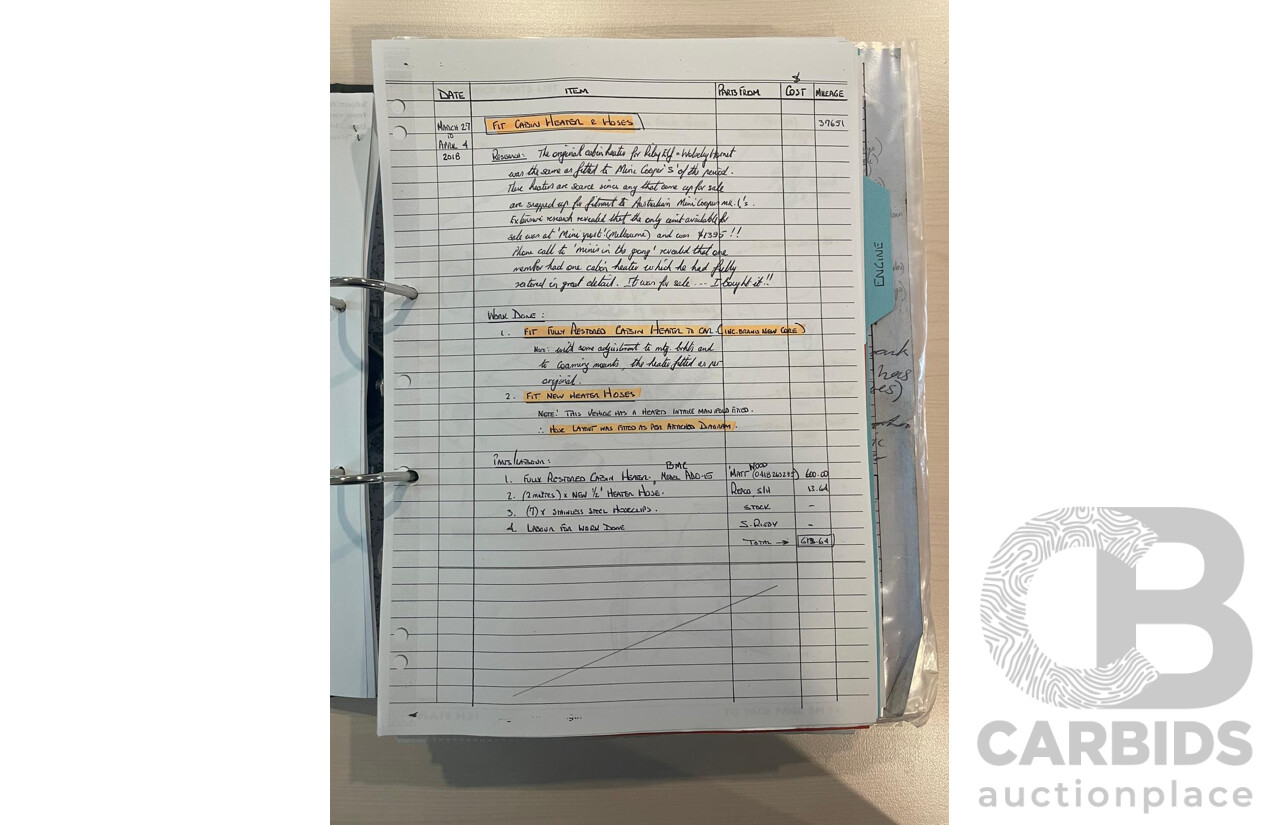 DATE ITEM PARTS FROM $ COST MILEAGE
MARCH 27 TO APRIL 4 2018
FIT CABIN HEATER & HOSES 37651
RESEARCH: The original cabin heater for Riley Elf - Wolseley Hornet
was the same as fitted to Mini Cooper 'S' of the period.
These heaters are scarce since any that come up for sale
are snapped up for fitment to Australian Mini Cooper mk.1's.
Extensive research revealed that the only unit available for
sale was at 'Mini sport' (Melbourne) and was $1395 !!
Phone call to 'minis in the gong' revealed that one
member had one cabin heater which he had fully
restored in great detail. It was for sale ... I bought it !!
WORK DONE :
1. FIT FULLY RESTORED CABIN HEATER TO CAR (INC. BRAND NEW CORE)
NOTE: with some adjustment to mtg. brkts and
to coaming mounts, the heater fitted as per
original.
2. FIT NEW HEATER HOSES
NOTE: THIS VEHICLE HAS A HEATED INTAKE MANIFOLD FITTED.
∴ HOSE LAYOUT WAS FITTED AS PER ATTACHED DIAGRAM.
PARTS/LABOUR:
1. FULLY RESTORED CABIN HEATER, BMC MODEL MATT WOOD (0418260295) 600.00
2. (2 METRES) x NEW 1/2" HEATER HOSE. REPCO, S/H 13.64
3. (7) x STAINLESS STEEL HOSECLIPS. STOCK -
4. LABOUR FOR WORK DONE -
TOTAL → 613.64
ENGINE
CB
CARBIDS
auctionplace